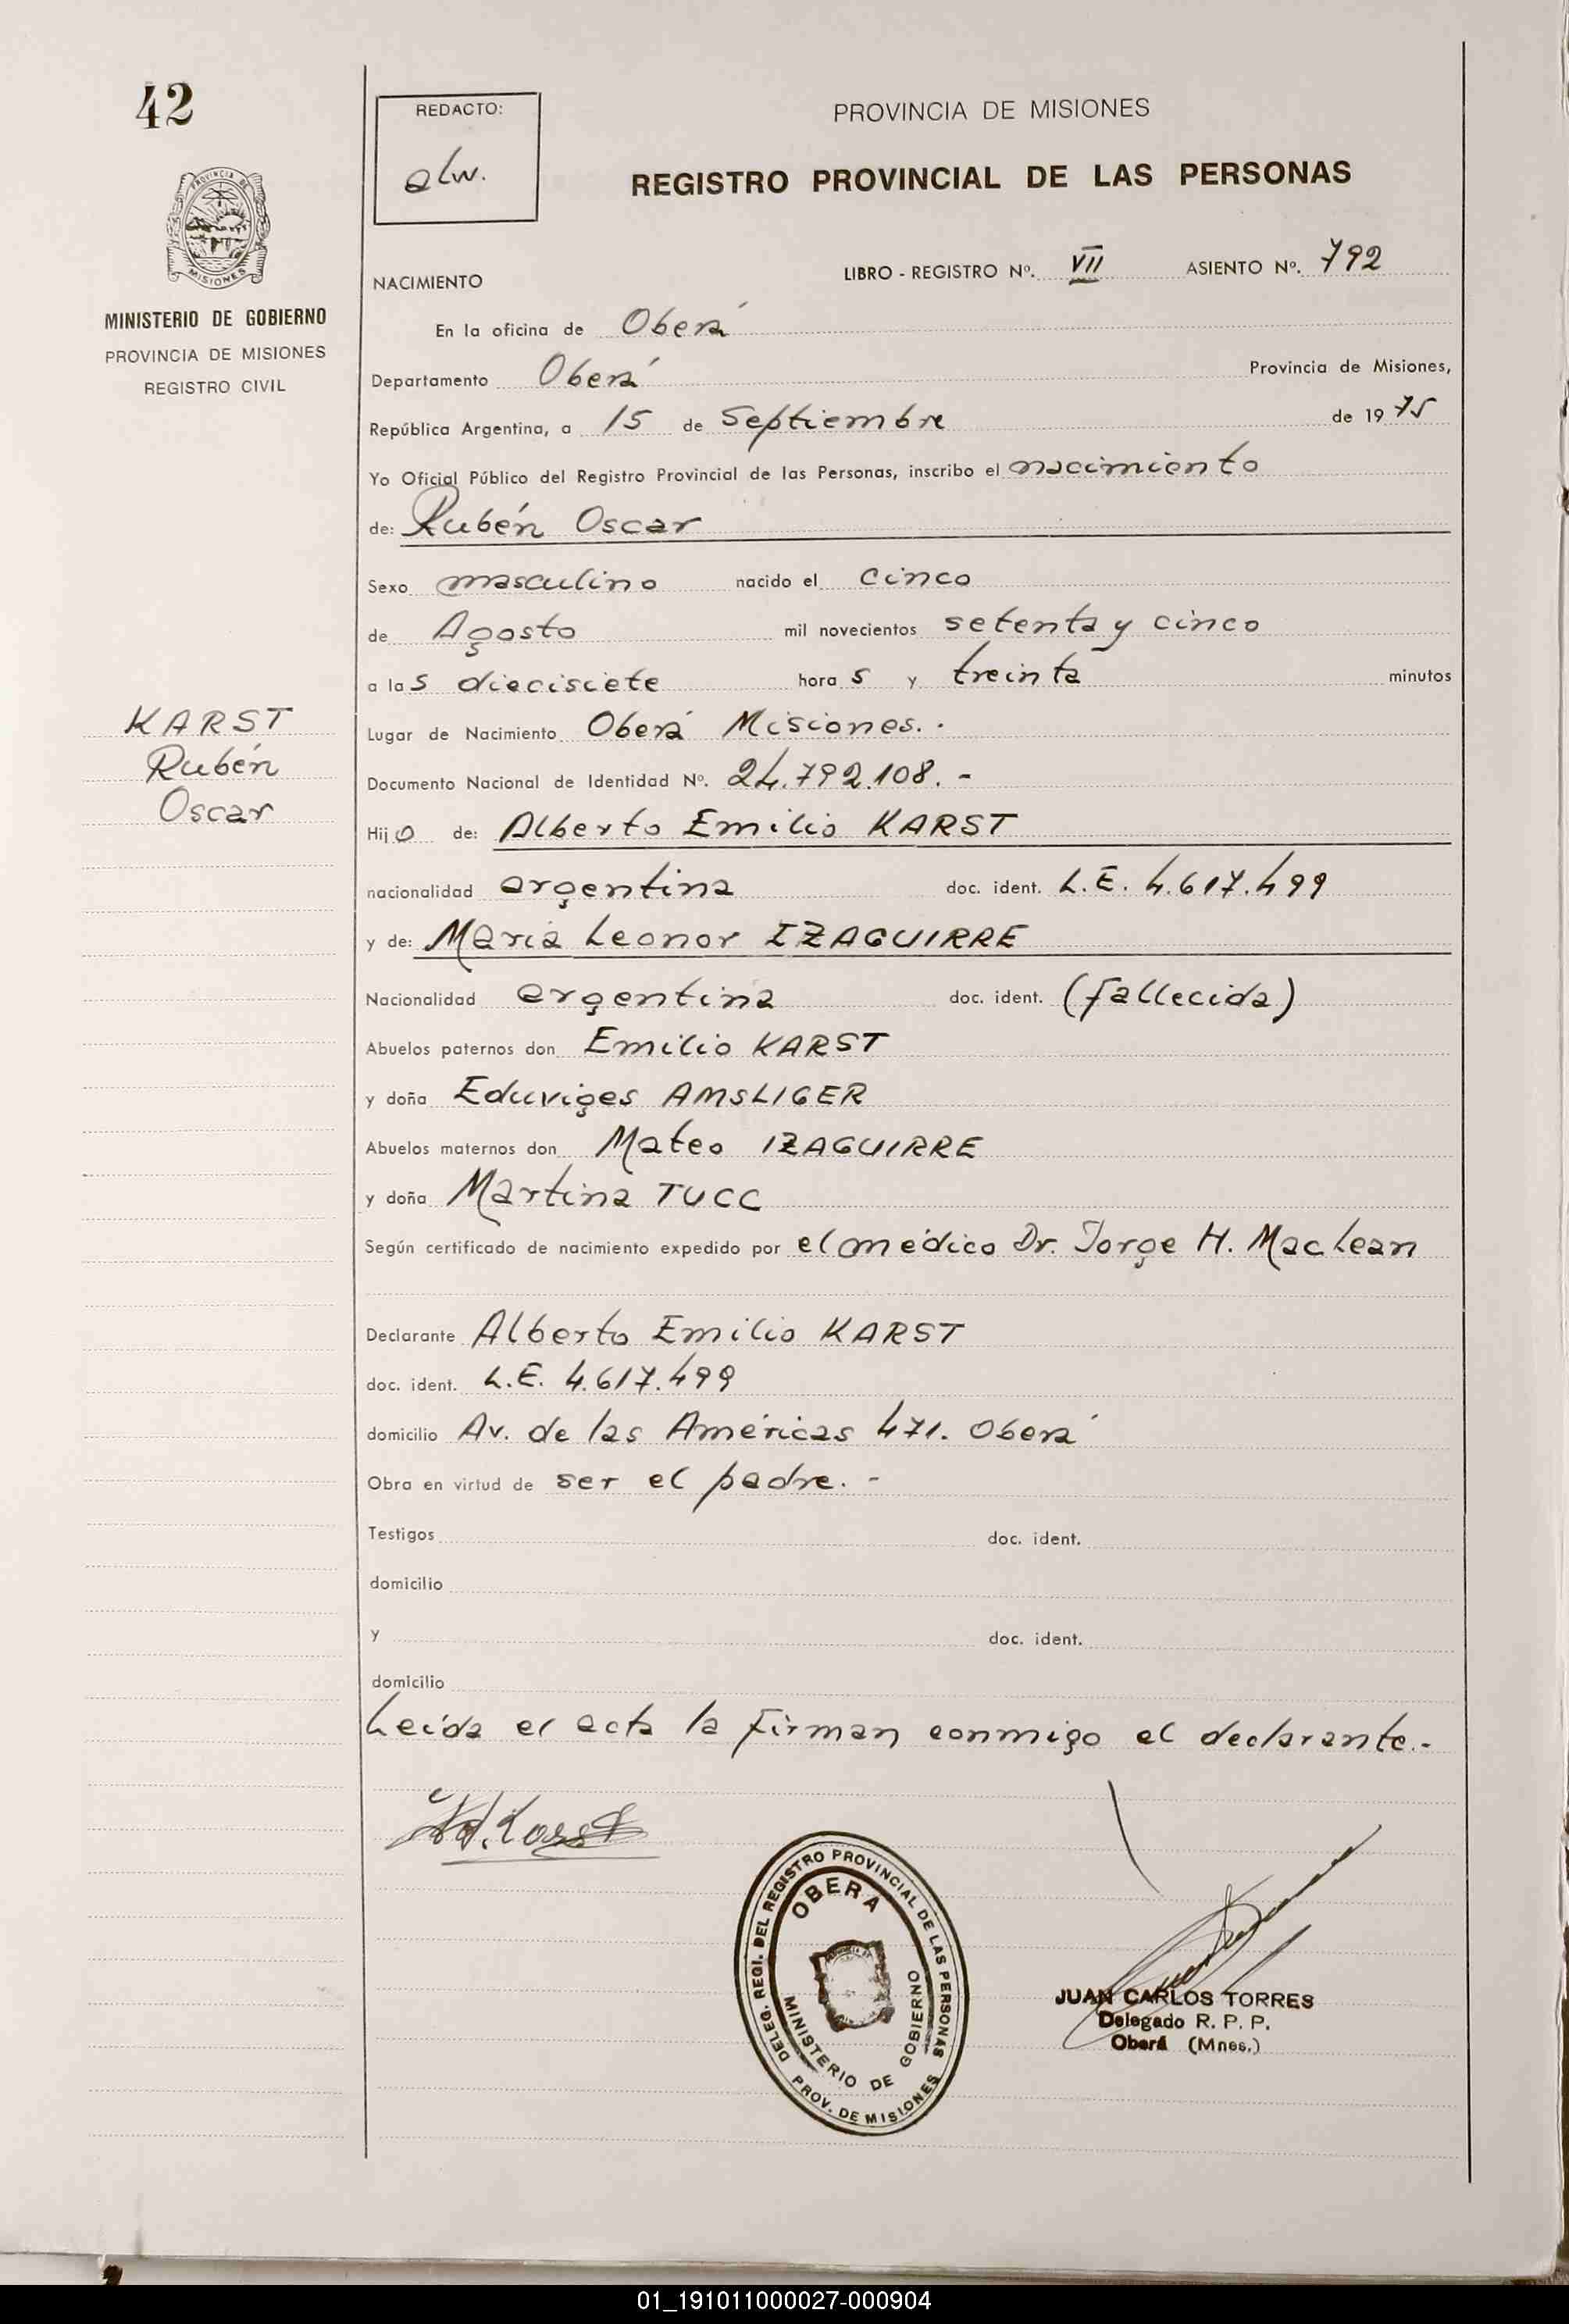 42
REDACTO:
alw.
PROVINCIA DE MISIONES
REGISTRO PROVINCIAL DE LAS PERSONAS
PROVINCIA DE
MISIONES
MINISTERIO DE GOBIERNO
PROVINCIA DE MISIONES
REGISTRO CIVIL
NACIMIENTO
LIBRO - REGISTRO Nº. VII ASIENTO Nº. 792
En la oficina de Oberá
Departamento Oberá Provincia de Misiones,
República Argentina, a 15 de Septiembre de 1975
Yo Oficial Público del Registro Provincial de las Personas, inscribo el nacimiento
de: Rubén Oscar
Sexo masculino nacido el cinco
de Agosto mil novecientos setenta y cinco
a las diecisiete horas y treinta minutos
KARST
Rubén
Oscar
Lugar de Nacimiento Oberá Misiones.-
Documento Nacional de Identidad Nº. 24.792.108.-
Hijo de: Alberto Emilio KARST
nacionalidad argentina doc. ident. L.E. 4.617.499
y de: María Leonor IZAGUIRRE
Nacionalidad argentina doc. ident. (fallecida)
Abuelos paternos don Emilio KARST
y doña Eduviges AMSLIGER
Abuelos maternos don Mateo IZAGUIRRE
y doña Martina TUCC
Según certificado de nacimiento expedido por el médico Dr. Jorge H. MacLean
Declarante Alberto Emilio KARST
doc. ident. L.E. 4.617.499
domicilio Av. de las Américas 471. Oberá
Obra en virtud de ser el padre.-
Testigos doc. ident.
domicilio
y doc. ident.
domicilio
Leída el acta la firman conmigo el declarante.-
DELEG. REGI. DEL REGISTRO PROVINCIAL DE LAS PERSONAS
OBERA
MINISTERIO DE GOBIERNO
PROV. DE MISIONES
JUAN CARLOS TORRES
Delegado R. P. P.
Oberá (Mnes.)
01_191011000027-000904